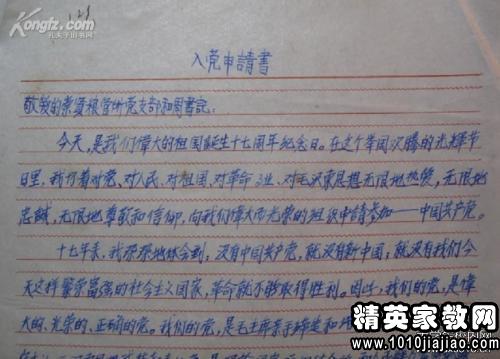 Kongfz.com
孔夫子旧书网
入党申請書
敬爱的 党支部和周書記:
今天,是我们偉大的祖国誕生十七周年纪念日。在这个举国欢腾的光辉节
日里,我怀着对党、对人民、对祖国、对革命事业、对毛泽东思想无限地热愛,无限地
忠誠,无限地尊敬和信仰,向我们偉大而光荣的组织申請参加——中国共产党。
十七年来,我深深地体会到:没有中国共产党,就没有新中国;就没有我们今
天这样繁荣富强的社会主义国家,革命就不能取得胜利。因此,我们的党,是偉
大的、光荣的、正确的党。我们的党,是毛主席亲手缔造和
精英家教网
www.1010jiajiao.com